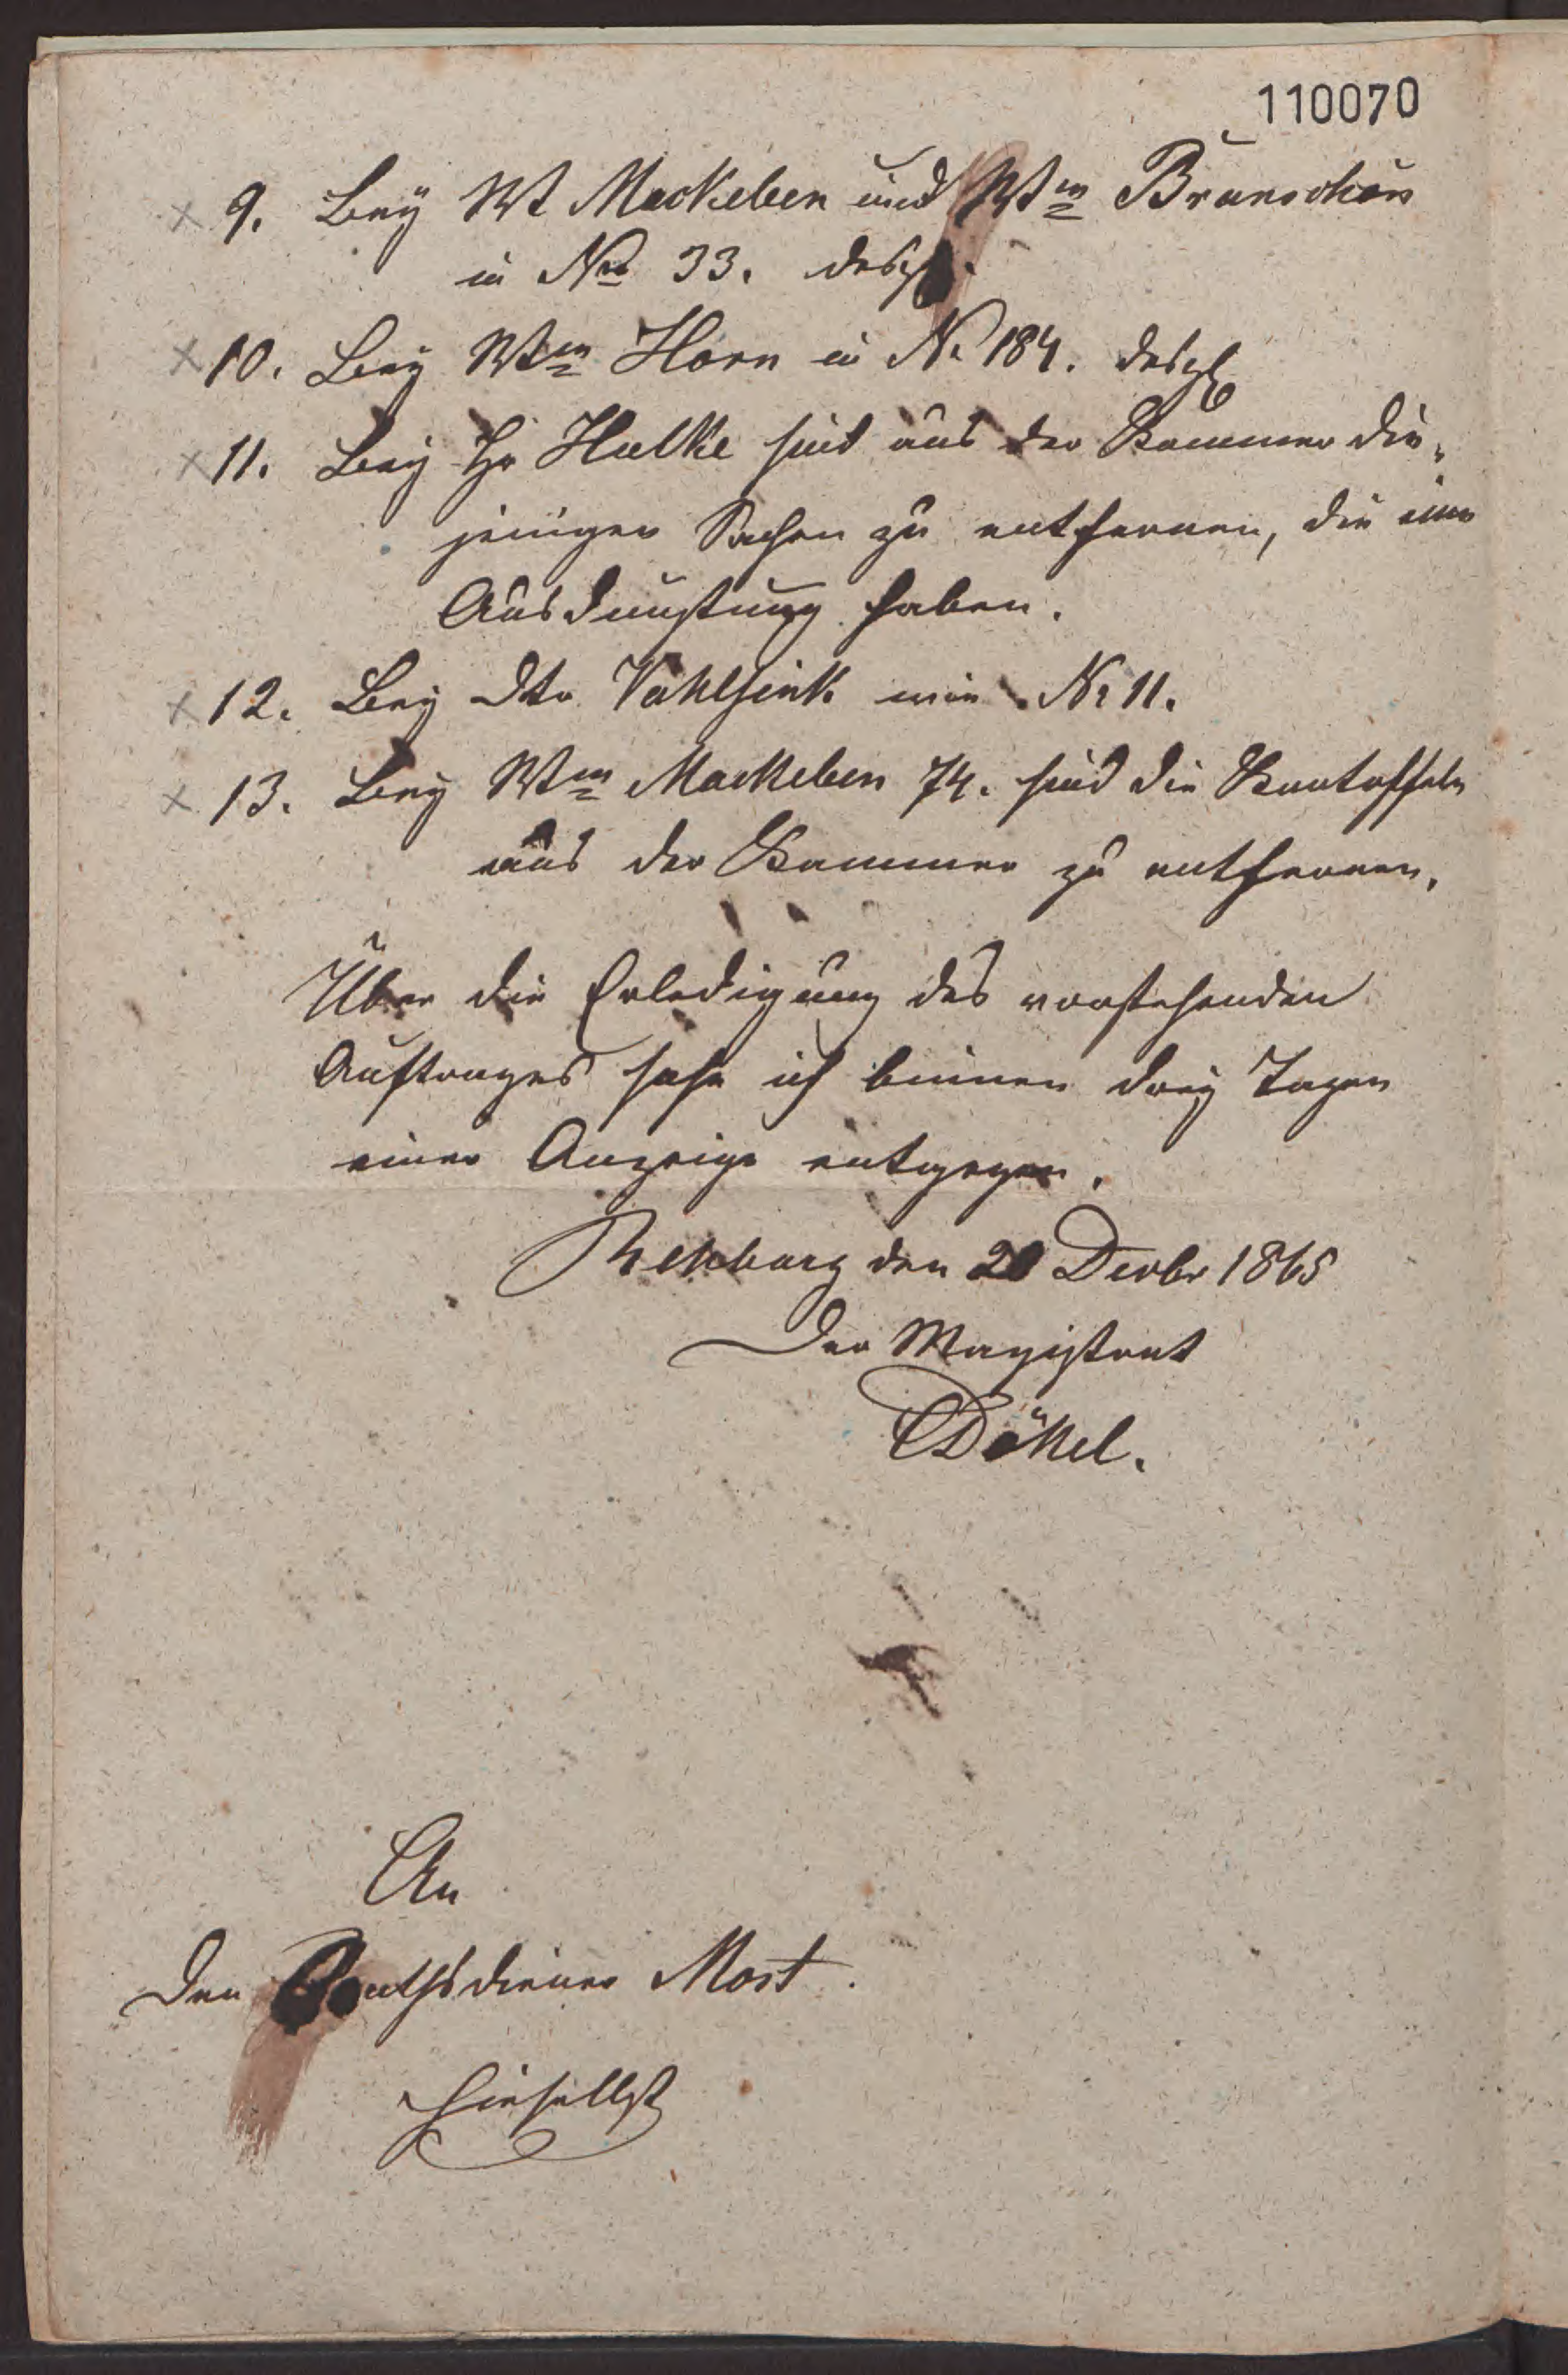 110070
× 9. Bey Wt Mackeben und Wtw Brunschön
in No 33. desgl.
× 10. Bey Wtw Horn in No 184. desgl
× 11. Bey Hr Hulke sind aus der Kammer die-
jenigen Sachen zu entfernen, die eine
Ausdunstung haben.
× 12. Bey Dto Vahlsink wie No 11.
× 13. Bey Wtw Mackeben 74. sind die Kartoffeln
aus der Kammer zu entfernen.
Über die Erledigung des vorstehenden
Auftrages sehe ich binnen drey Tagen
einer Anzeige entgegen.
Rehburg den 20 Decbr 1865
Der Magistrat
Dökel.
An
den Rathsdiener Most.
hieselbst